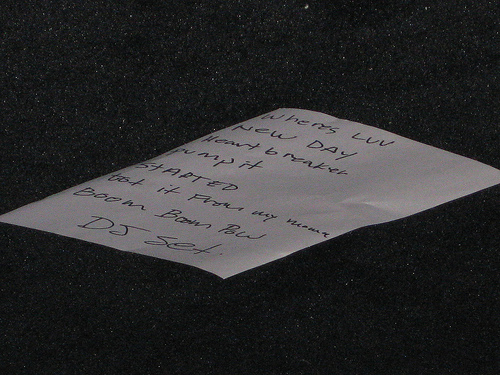 Where's LUV
NEW DAY
Heart breaker
Pump it
STARTED
Got it From my mama
BOOM BOOM POW
DJ Set.